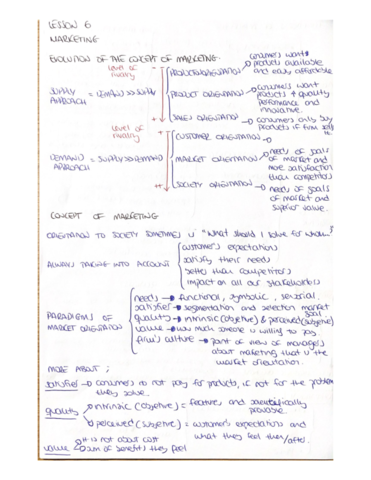 LESSON 6
MARKETING
EVOLUTION OF THE CONCEPT OF MARKETING
level of rivalry
SUPPLY APPROACH = DEMAND >> SUPPLY
PRODUCTION ORIENTATION → consumers want products available and easily affordable
PRODUCT ORIENTATION → consumers want products + quality performance and innovative.
SALES ORIENTATION → consumers only buy products if firm sells it.
level of rivalry
DEMAND APPROACH = SUPPLY >> DEMAND
CUSTOMER ORIENTATION
MARKET ORIENTATION → needs of goals of market and more satisfaction than competitors
SOCIETY ORIENTATION → needs of goals of market and superior value.
CONCEPT OF MARKETING
ORIENTATION TO SOCIETY SOMETIMES is "What should I solve for whom?"
ALWAYS TAKING INTO ACCOUNT
customer's expectations
satisfy their needs
better than competitors
impact on all our stakeholders
PARADIGMS OF MARKET ORIENTATION
needs → functional, symbolic,
satisfier → segmentation and selection market goal
quality → intrinsic (objective) & perceived (subjective)
value → how much someone is willing to pay
firm's culture → point of view of managers
about marketing that is the
market orientation.
MORE ABOUT:
satisfier → consumers do not pay for products, if not for the problem
they solve.
quality
intrinsic (objective) = features and scientifically
provable.
perceived (subjective) = customer's expectations and
what they feel then/after.
value → it is not about cost
→ sum of benefits they feel